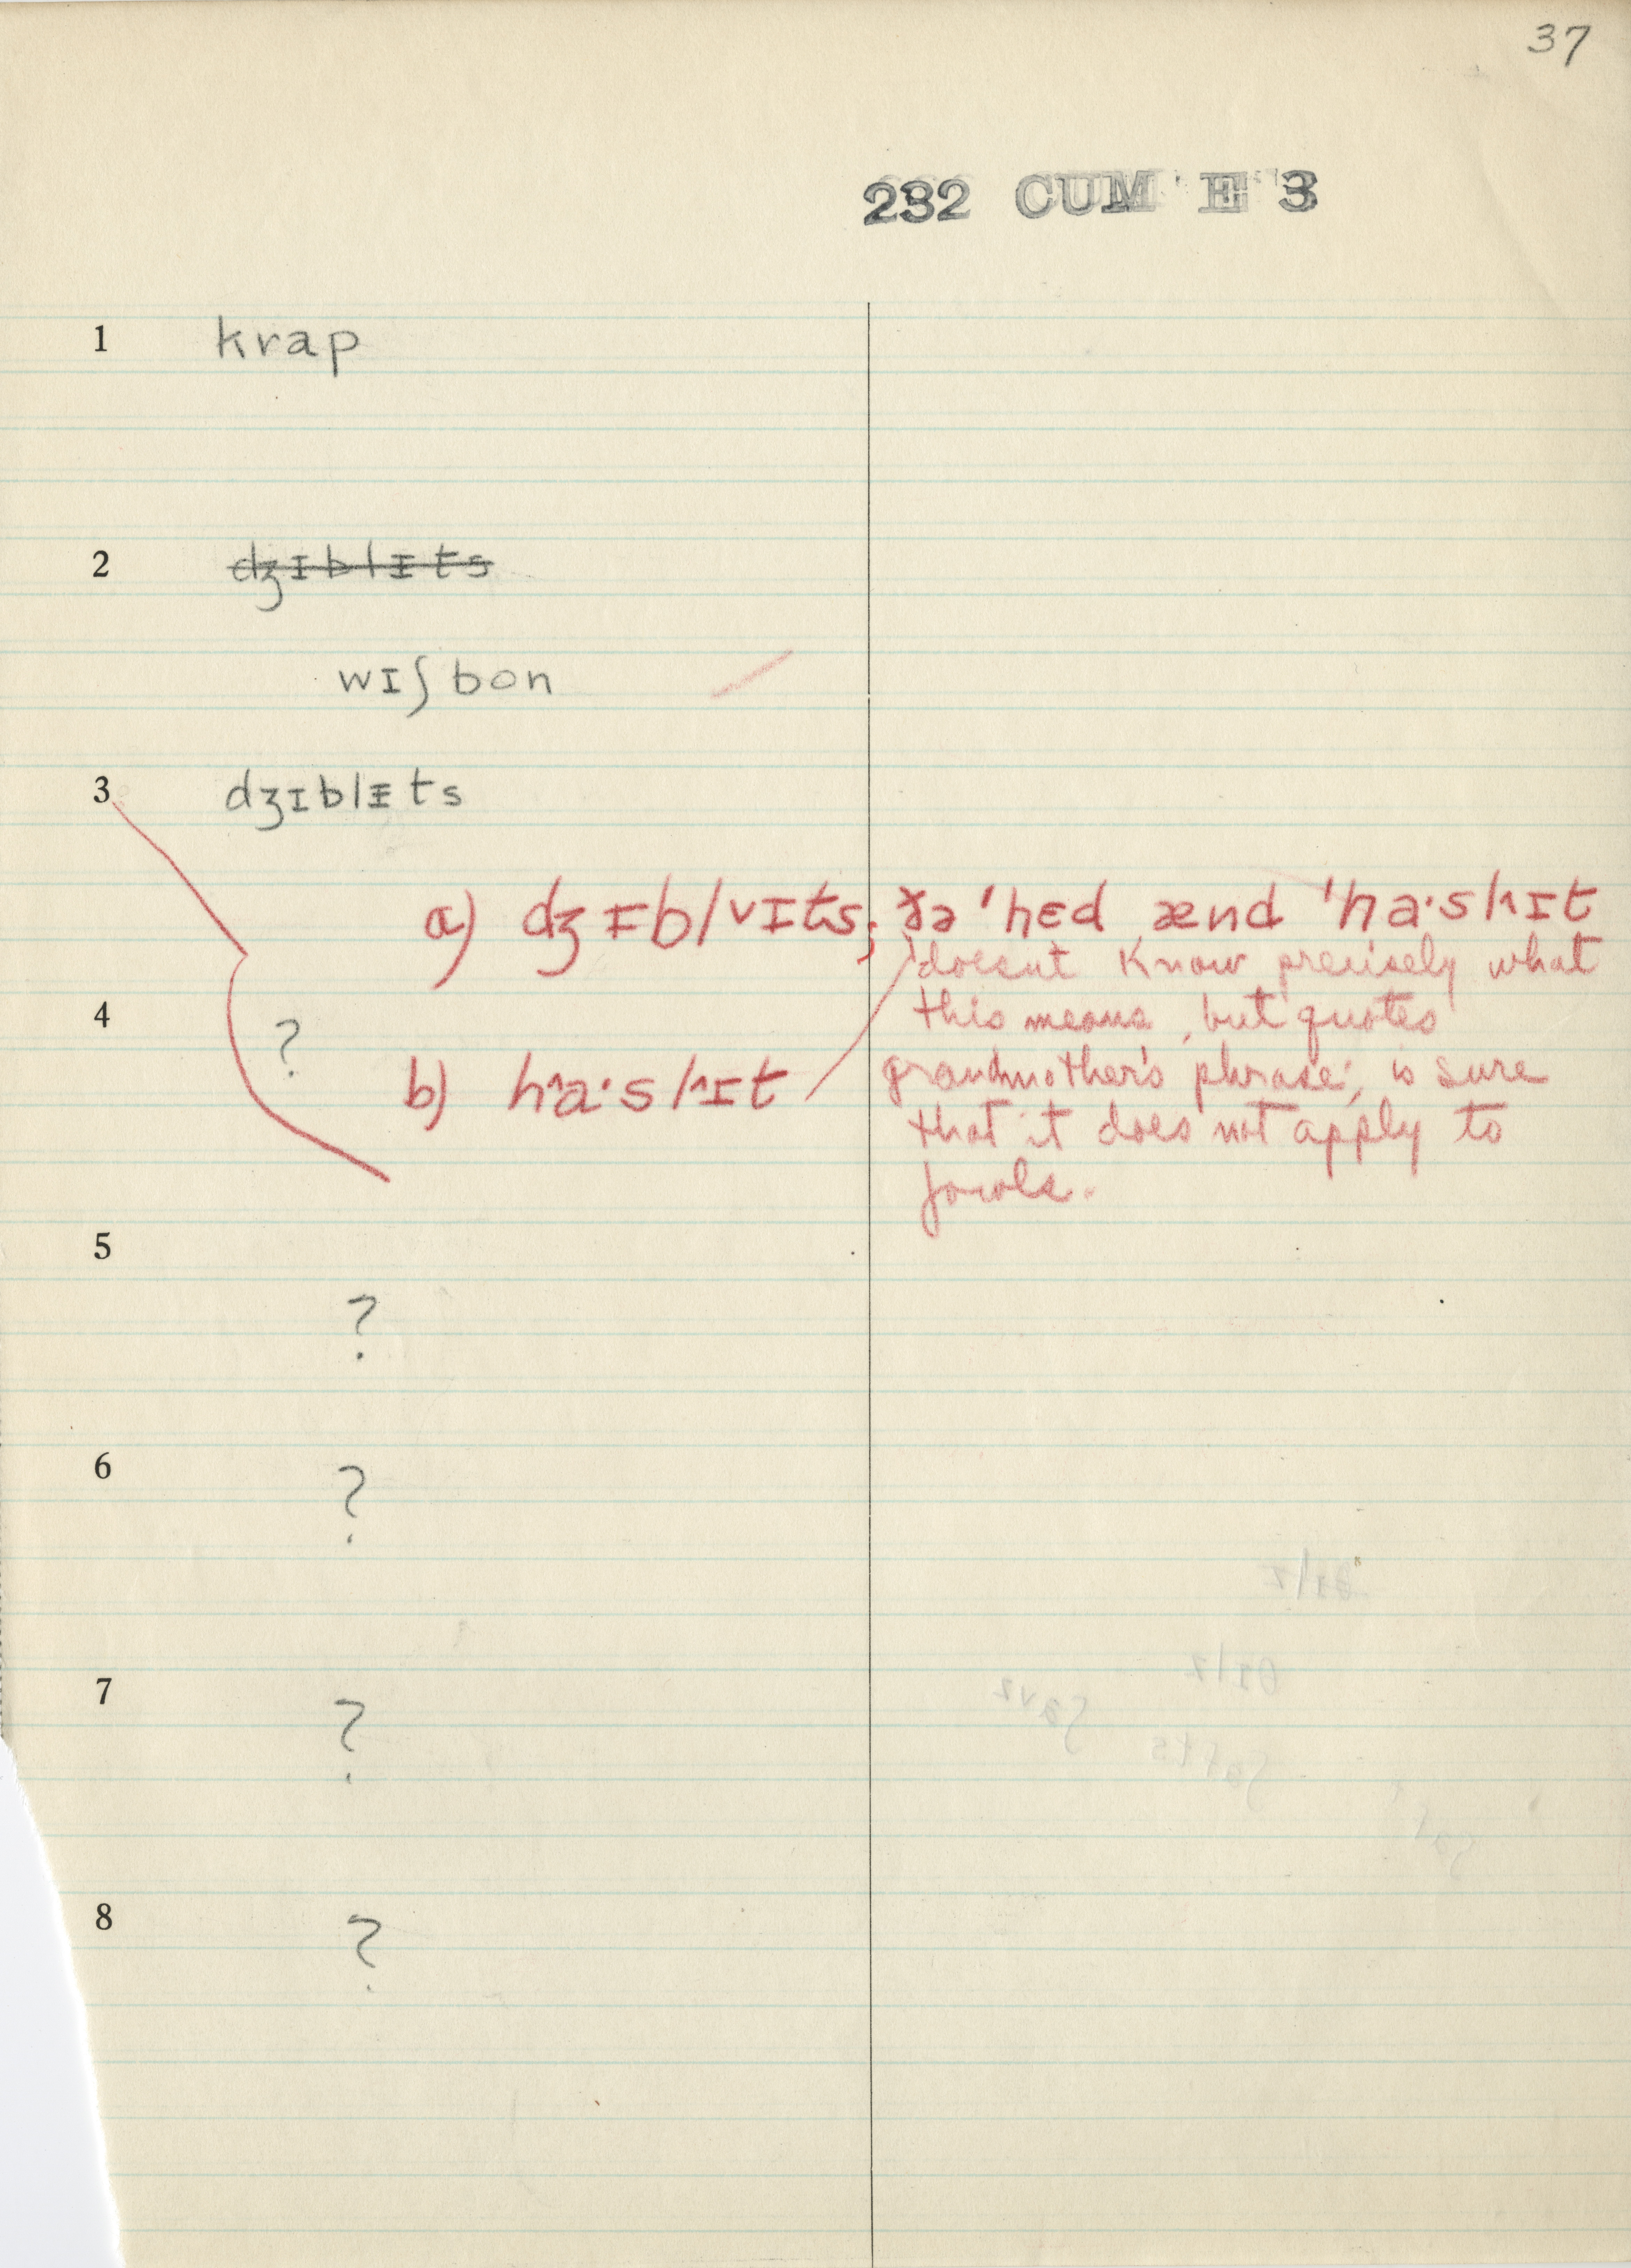 37
232 CUM E 3
1 krap
2 dʒɪblɪts
wɪʃbon
3 dʒɪblᵻts
a) dʒᵻblvɪts; ðə 'hɛd ænd 'ha·slɪt
doesn't know precisely what
4 ?
this means, but quotes
b) ha·slɪt
grandmother's phrase; is sure
that it does not apply to
fowls.
5
?
6
?
7
?
8
?